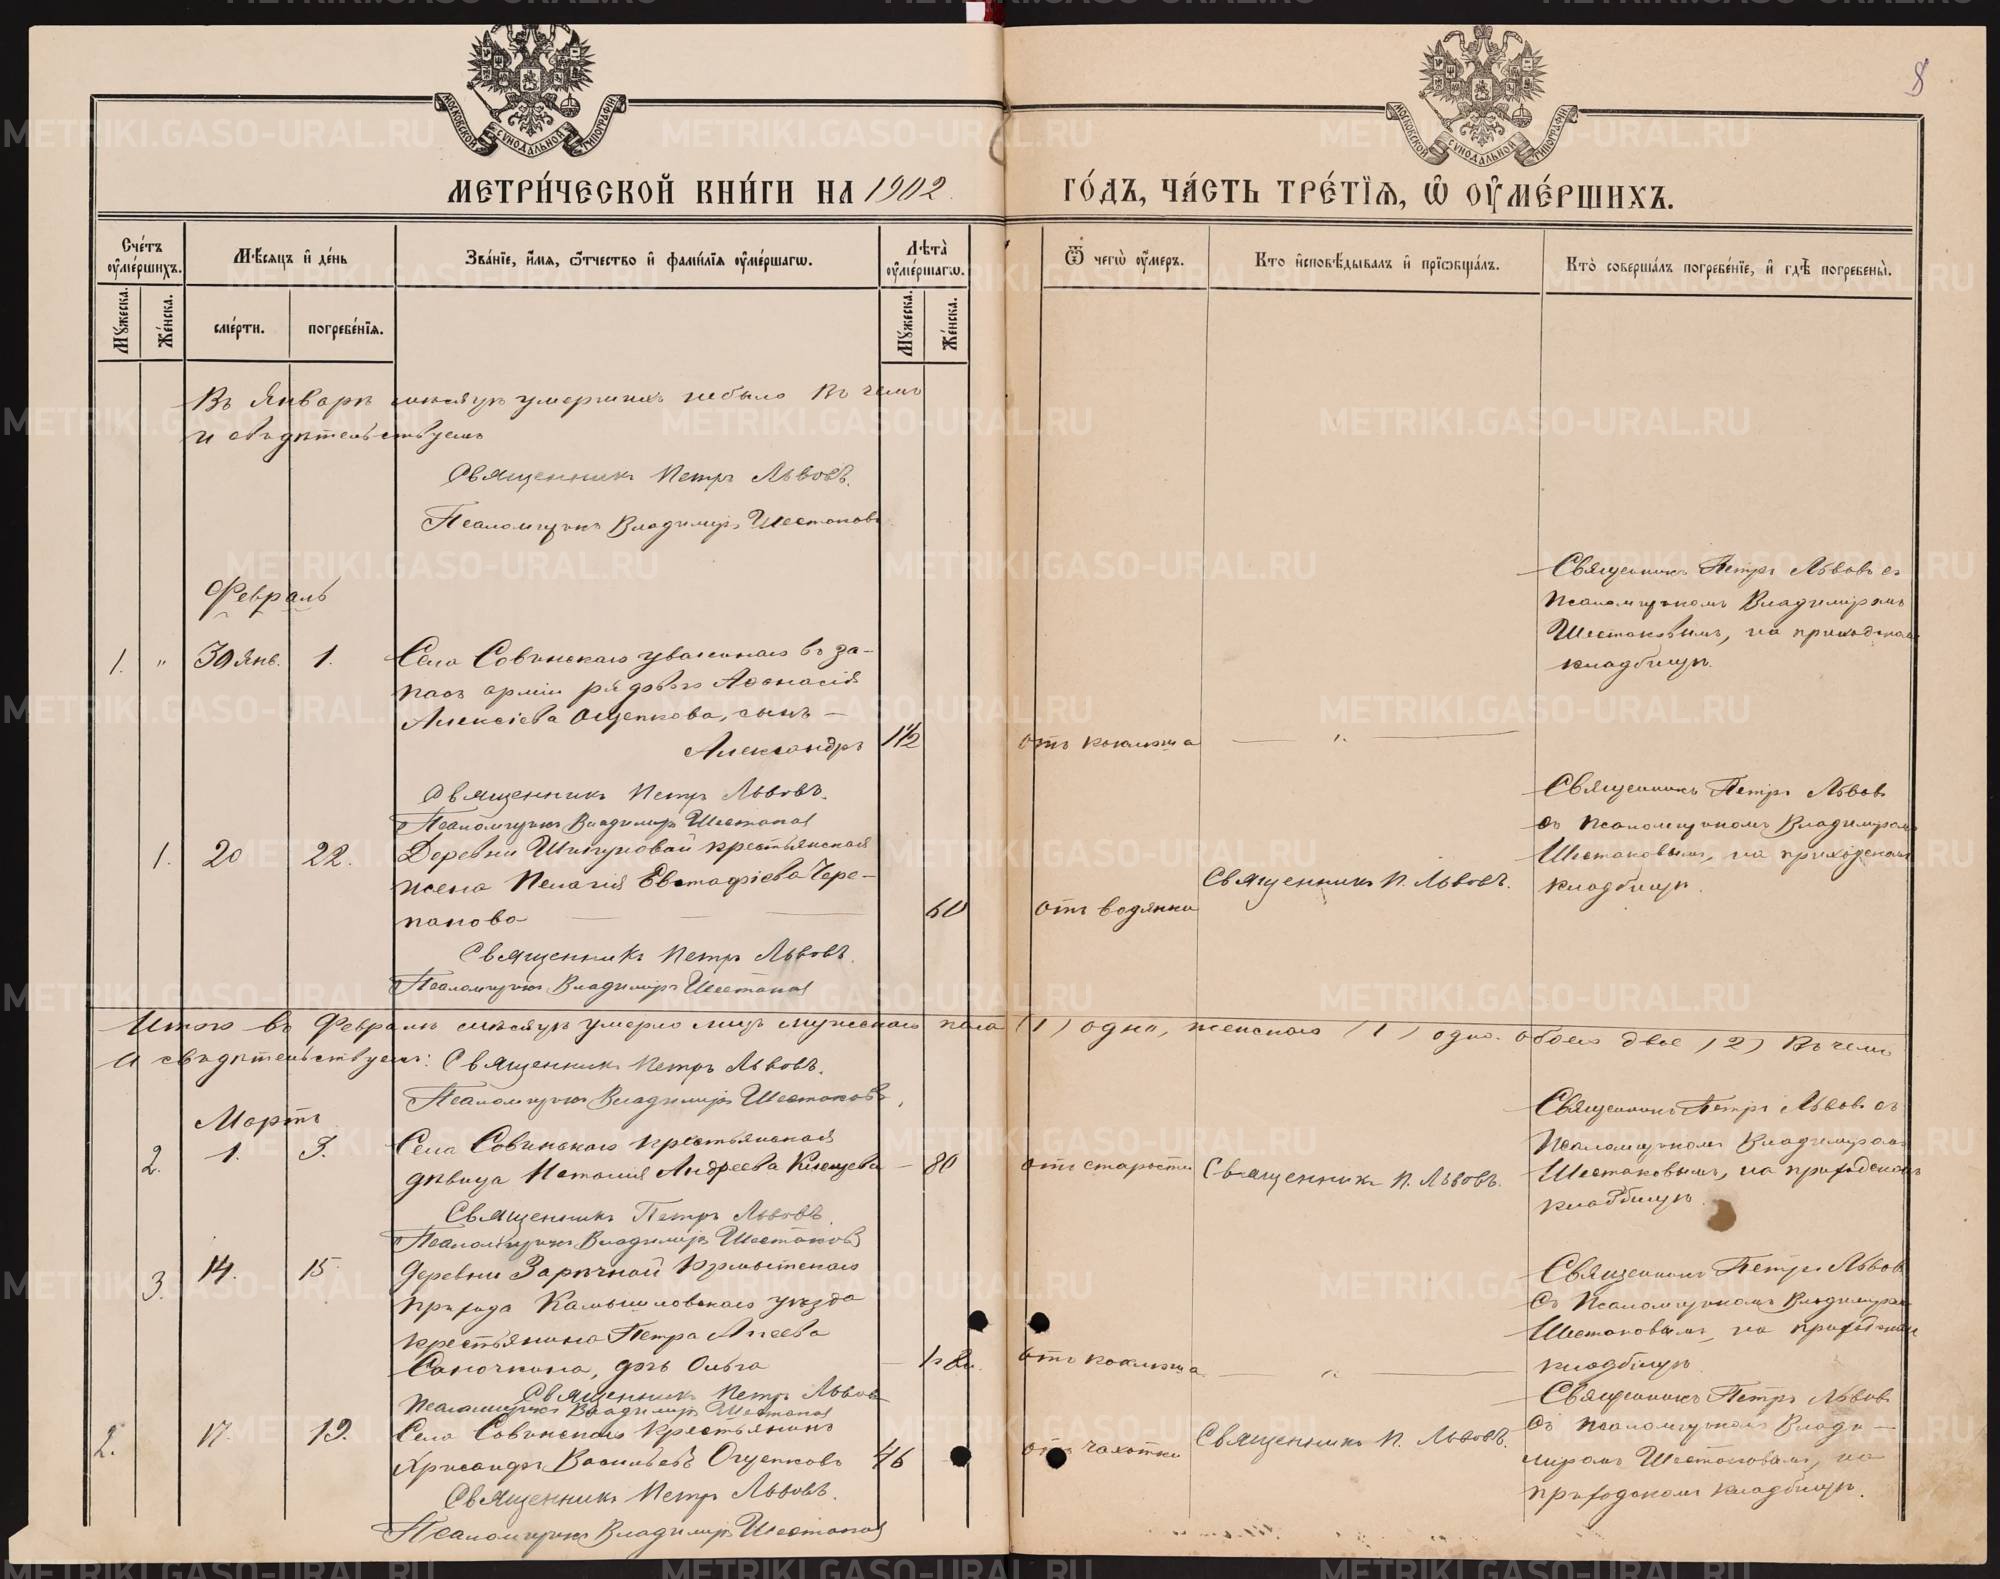 МЕТРИ́ЧЕСКОЙ КНИ́ГИ НА 1902 ГО́ДЪ, ЧА́СТЬ ТРЕ́ТІѦ, Ѡ҆ ОУ҆МЕ́РШИХЪ.
8
МОСКОВСКОЙ СѴНОДАЛЬНОЙ ТИПОГРАФІИ
МОСКОВСКОЙ СѴНОДАЛЬНОЙ ТИПОГРАФІИ
Сче́тъ оу҆ме́ршихъ.
Мꙋ́жеска.
Же́нска.
Мѣ́сѧцъ и҆ де́нь
сме́рти.
погребе́нїѧ.
Зва́нїе, и҆́мѧ, ѻ҆́тчество и҆ фами́лїѧ оу҆ме́ршагѡ.
Лѣ́та оу҆ме́ршагѡ.
Мꙋ́жеска.
Же́нска.
Ѿ чегѡ̀ оу҆́меръ.
Кто̀ и҆сповѣ́дывалъ и҆ прїѡбща́лъ.
Кто̀ соверша́лъ погребе́нїе, и҆ гдѣ̀ погребены̀.
Въ Январѣ мѣсяцѣ умершихъ небыло Въ чемъ
и свидѣтельствуемъ
Священникъ Петръ Львовъ.
Псаломщикъ Владимиръ Шестаковъ
Февраль
1. " 30 Янв. 1.
Села Совинскаго уволеннаго въ за-
пасъ арміи рядового Аѳанасія
Алексіева Ощепкова, сынъ —
Александръ
1 1/2
отъ коклюша — " —
Священникъ Петръ Львовъ съ
Псаломщикомъ Владимиромъ
Шестаковымъ, на приходскомъ
кладбищѣ.
Священникъ Петръ Львовъ.
Псаломщикъ Владимиръ Шестаковъ
1. 20 22.
Деревни Шипуновой крестьянская
жена Пелагія Евстафіева Чере-
панова
60
отъ водянки
Священникъ П. Львовъ.
Священникъ Петръ Львовъ
съ Псаломщикомъ Владимиромъ
Шестаковымъ, на приходскомъ
кладбищѣ.
Священникъ Петръ Львовъ.
Псаломщикъ Владимиръ Шестаковъ
Итого въ Февралѣ мѣсяцѣ умерло лицъ мужескаго пола (1) одно, женскаго (1) одно. обоего двое (2) Въ чемъ
и свидѣтельствуемъ: Священникъ Петръ Львовъ.
Псаломщикъ Владимиръ Шестаковъ,
Мартъ
2. 1. 3.
Села Совинскаго крестьянская
дѣвица Наталія Андреева Клещева — 80
отъ старости
Священникъ П. Львовъ.
Священникъ Петръ Львовъ съ
Псаломщикомъ Владимиромъ
Шестаковымъ, на приходскомъ
кладбищѣ.
Священникъ Петръ Львовъ.
Псаломщикъ Владимиръ Шестаковъ
3. 14. 15.
Деревни Зарѣчной
прихода Камышловскаго уѣзда
крестьянина Петра
Саночкина, дочь Ольга
отъ коклюша — " —
Священникъ Петръ Львовъ
съ Псаломщикомъ Владимиромъ
Шестаковымъ, на приходскомъ
кладбищѣ
Священникъ Петръ Львовъ
Псаломщикъ Владимиръ Шестаковъ
2. 17. 19.
Села Совинскаго крестьянинъ
Хрисанфъ Васильевъ Ощепковъ 46
отъ чахотки
Священникъ П. Львовъ.
Священникъ Петръ Львовъ
съ Псаломщикомъ Влади-
миромъ Шестаковымъ, на
приходскомъ кладбищѣ.
Священникъ Петръ Львовъ.
Псаломщикъ Владимиръ Шестаковъ
METRIKI.GASO-URAL.RU